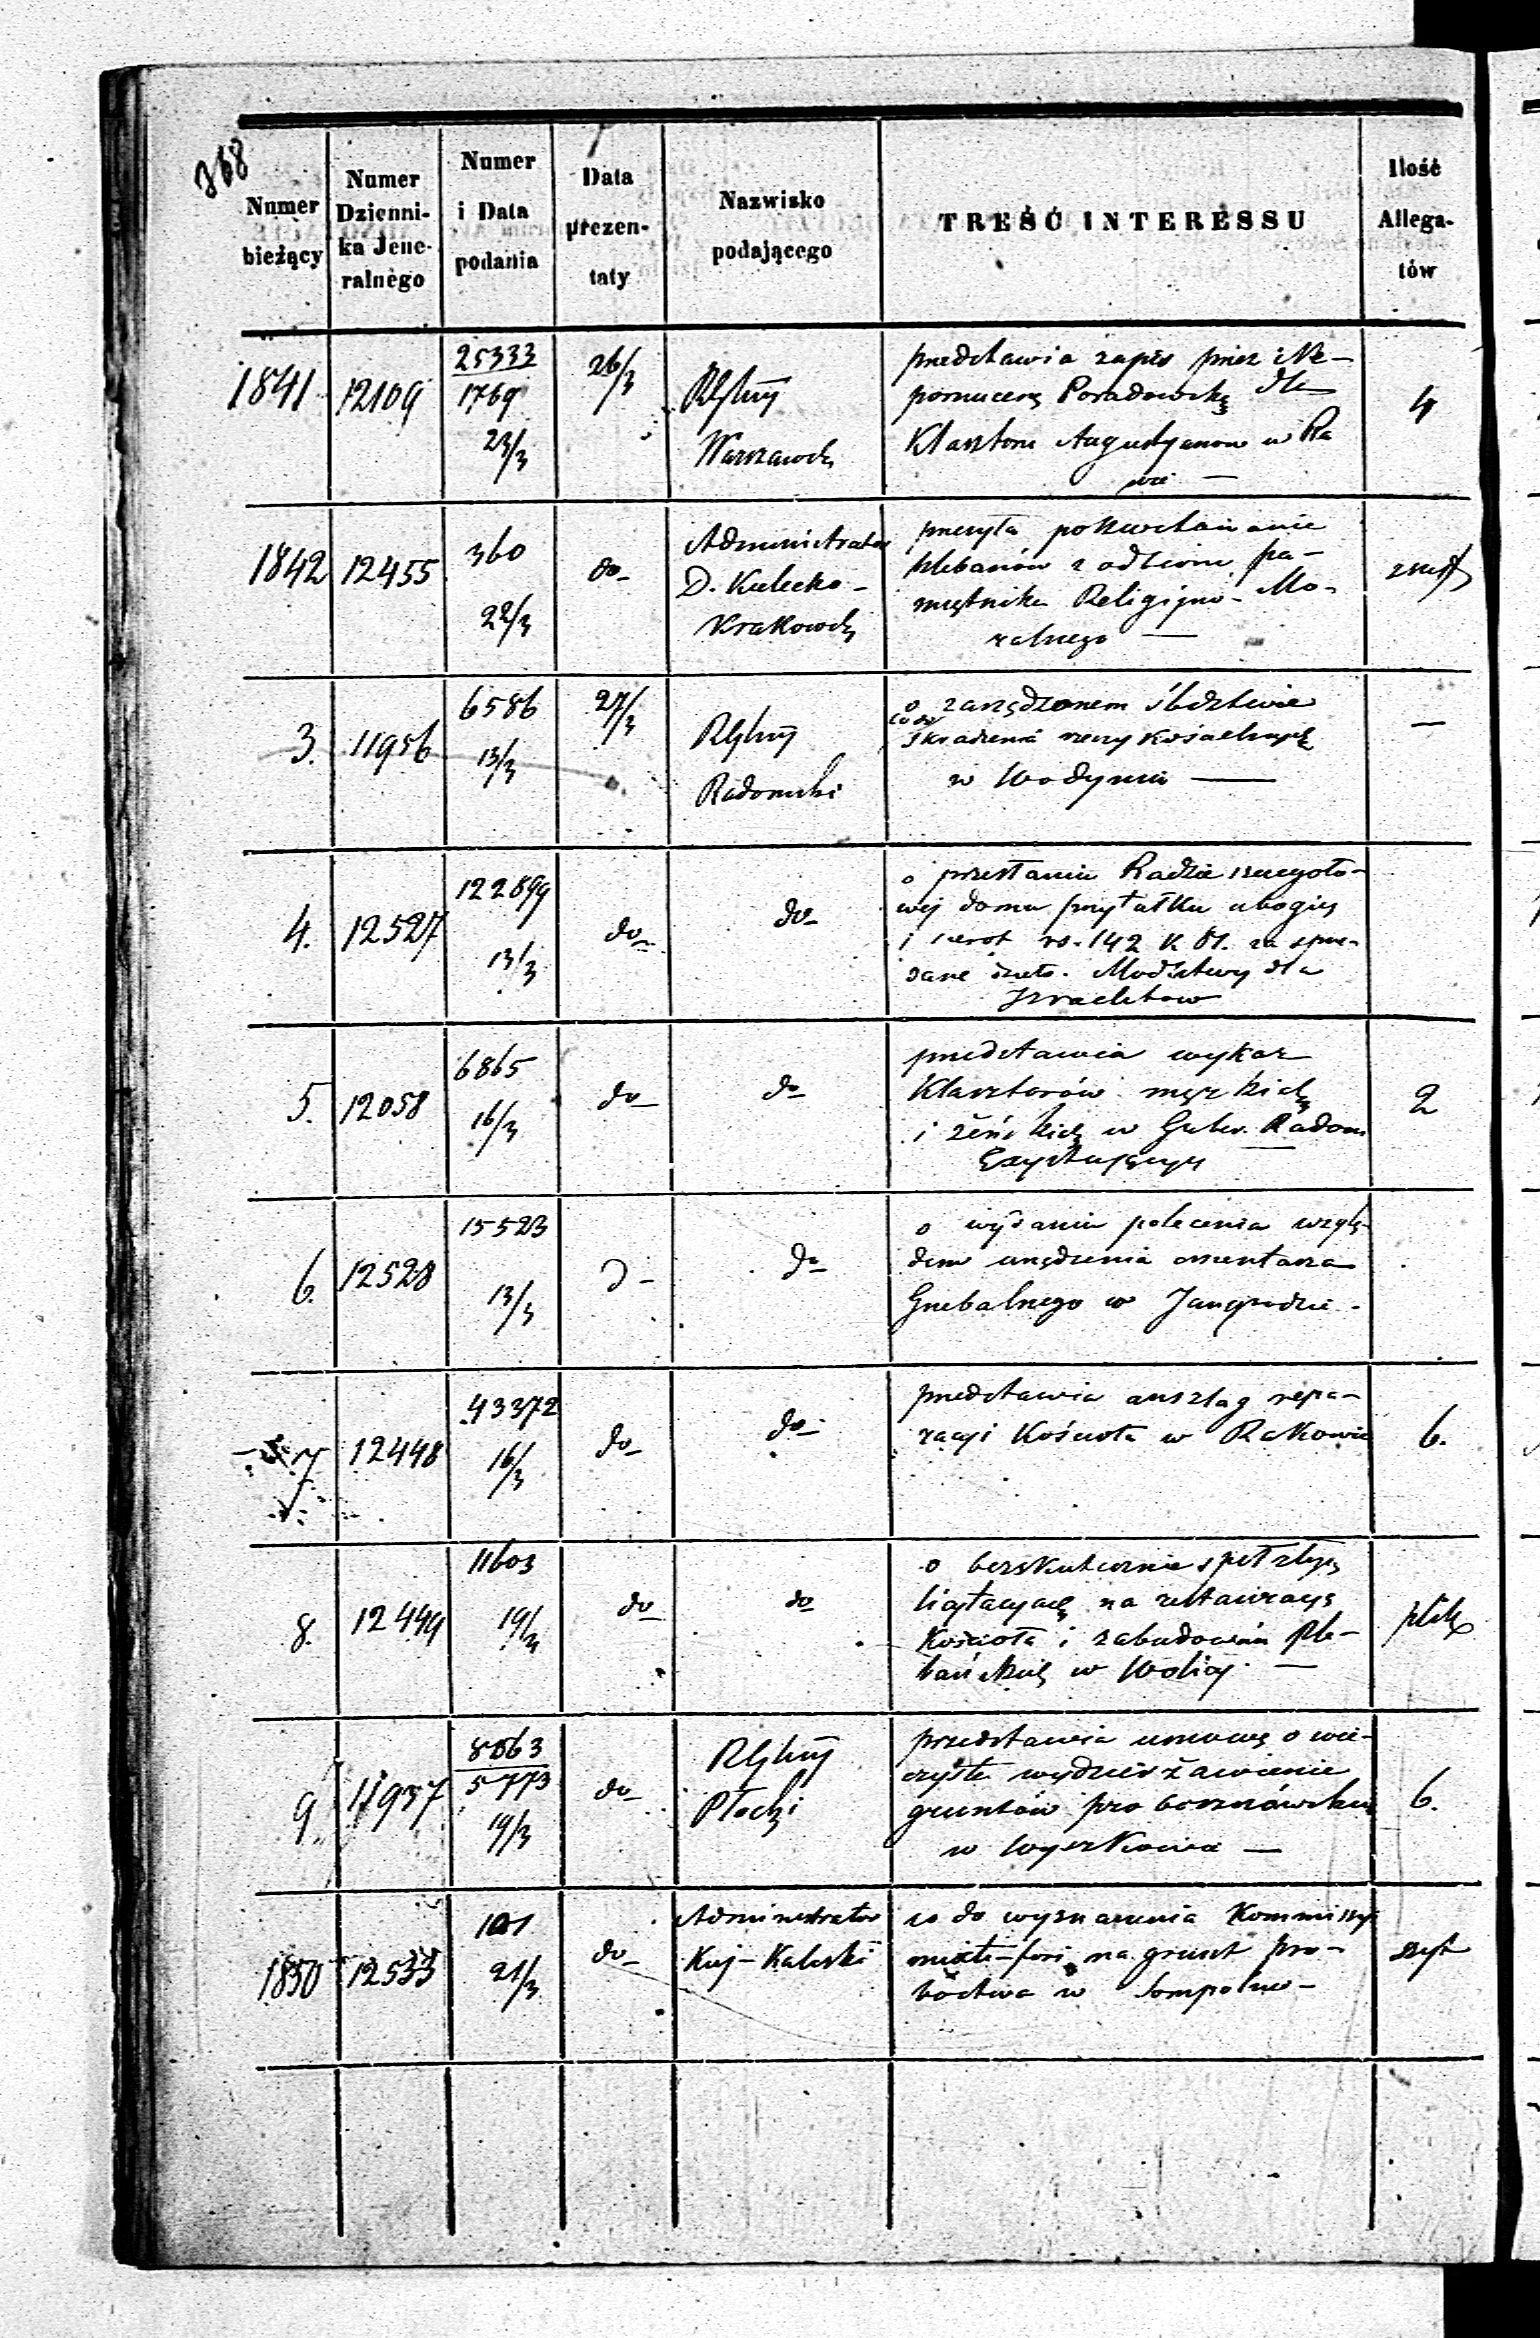 368
Numer bieżący
Numer Dzienni- ka Jene- ralnego
Numer i Data podania
Data prezen- taty
Nazwisko podającego
TREŚĆ INTERESSU
Ilość Allega- tów
1841 12109 25333/1769 23/3 26/3
Rząd Gub
Warszawski
przedstawia zapis przez Ne-
pomucenę Poradowską dla
Klasztoru Augustjanów w Ra
wie —
4
1842 12455 360 22/3 do-
Administrator
D. Kielecko-
Krakowski
przesyła pokwitowanie
plebanów z odbioru pa-
miętnika Religijno-Mo-
ralnego —
3. 11956 6586 13/3 27/3
Radomski
o zarządzonem śledztwie
co do skradzenia rzeczy kościelnych
w Wodyniu —
—
4. 12527 122899 13/3 do- do-
o przesłaniu Radzie szczegóło-
wej domu przytułku ubogich
i sierot rs. 142 k 81. za sprze-
dane dzieło. Modlitwy dla
Izraelitów
5. 12058 6865 16/3 do- do-
przedstawia wykaz
Klasztorów męzkich
i żeńskich w Gub. Radom
Exystujących
2
6. 12528 15523 13/3 d- do-
o wydaniu polecenia wzglę-
dem urządzenia cmentarza
Grzebalnego w Jangrodzie.
7 12448 43372 16/3 do- do-
przedstawia anszlag repa-
racyi Kościoła w Rakowie
6.
8. 12449 11603 19/3 do- do-
o bezskutecznie spełzłych
licytacyach na restauracyą
Kościoła i zabudowań Ple-
bańskich w Wolicy. —
plik
9. 11957 8063/5773 19/3 do-
Płocki
przedstawia umowę o wie-
czyste wydzierżawienie
gruntów proboszczowskich
w Wyszkowie —
6.
1850 12533 101 21/3 do-
Administrator
Kuj-Kaliski
co do wyznaczenia Kommissyi
mixti-fori na grunt pro-
bostwa w Sompolnie-